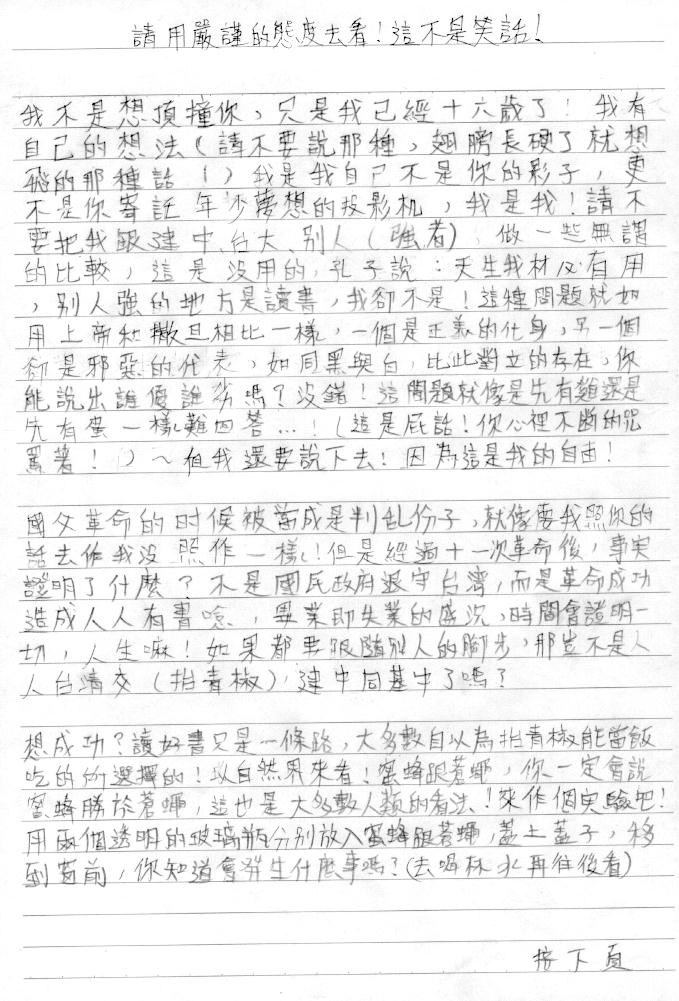 請用嚴謹的態度去看!這不是笑話!
我不是想頂撞你，只是我已經十六歲了!我有
自己的想法(請不要說那種，翅膀長硬了就想
飛的那種話!)我是我自己不是你的影子，更
不是你寄託年少夢想的投影机，我是我!請不
要把我跟建中、台大、別人(強者)，做一些無謂
的比較，這是沒用的，孔子說:天生我材必有用
，別人強的地方是讀書，我卻不是!這種問題就如
用上帝和撒旦相比一樣，一個是正義的化身，另一個
卻是邪惡的代表，如同黑與白，比此對立的存在，你
能說出誰優誰劣嗎?沒錯!這問題就像是先有雞還是
先有蛋一樣難回答…!(這是屁話!你心裡不斷的咒
罵著!)~但我還要說下去!因為這是我的自由!
國父革命的时候被當成是判乱份子，就像要我照你的
話去作我沒照作一樣!但是經過十一次革命後，事实
證明了什麼?不是國民政府退守台灣，而是革命成功
造成人人有書唸，畢業即失業的盛況，時間會證明一
切，人生嘛!如果都要跟隨別人的腳步，那豈不是人
人台清交(抬青椒)，建中同基中了嗎?
想成功?讀好書只是一條路，大多數自以為抬青椒能當飯
吃的所選擇的!以自然界來看!蜜蜂跟蒼蠅，你一定會說
蜜蜂勝於蒼蠅，這也是大多數人類的看法!來作個实驗吧!
用兩個透明的玻璃瓶分別放入蜜蜂跟蒼蠅，蓋上蓋子，移
到窗前，你知道會發生什麼事嗎?(去喝杯水再往後看)
接下頁